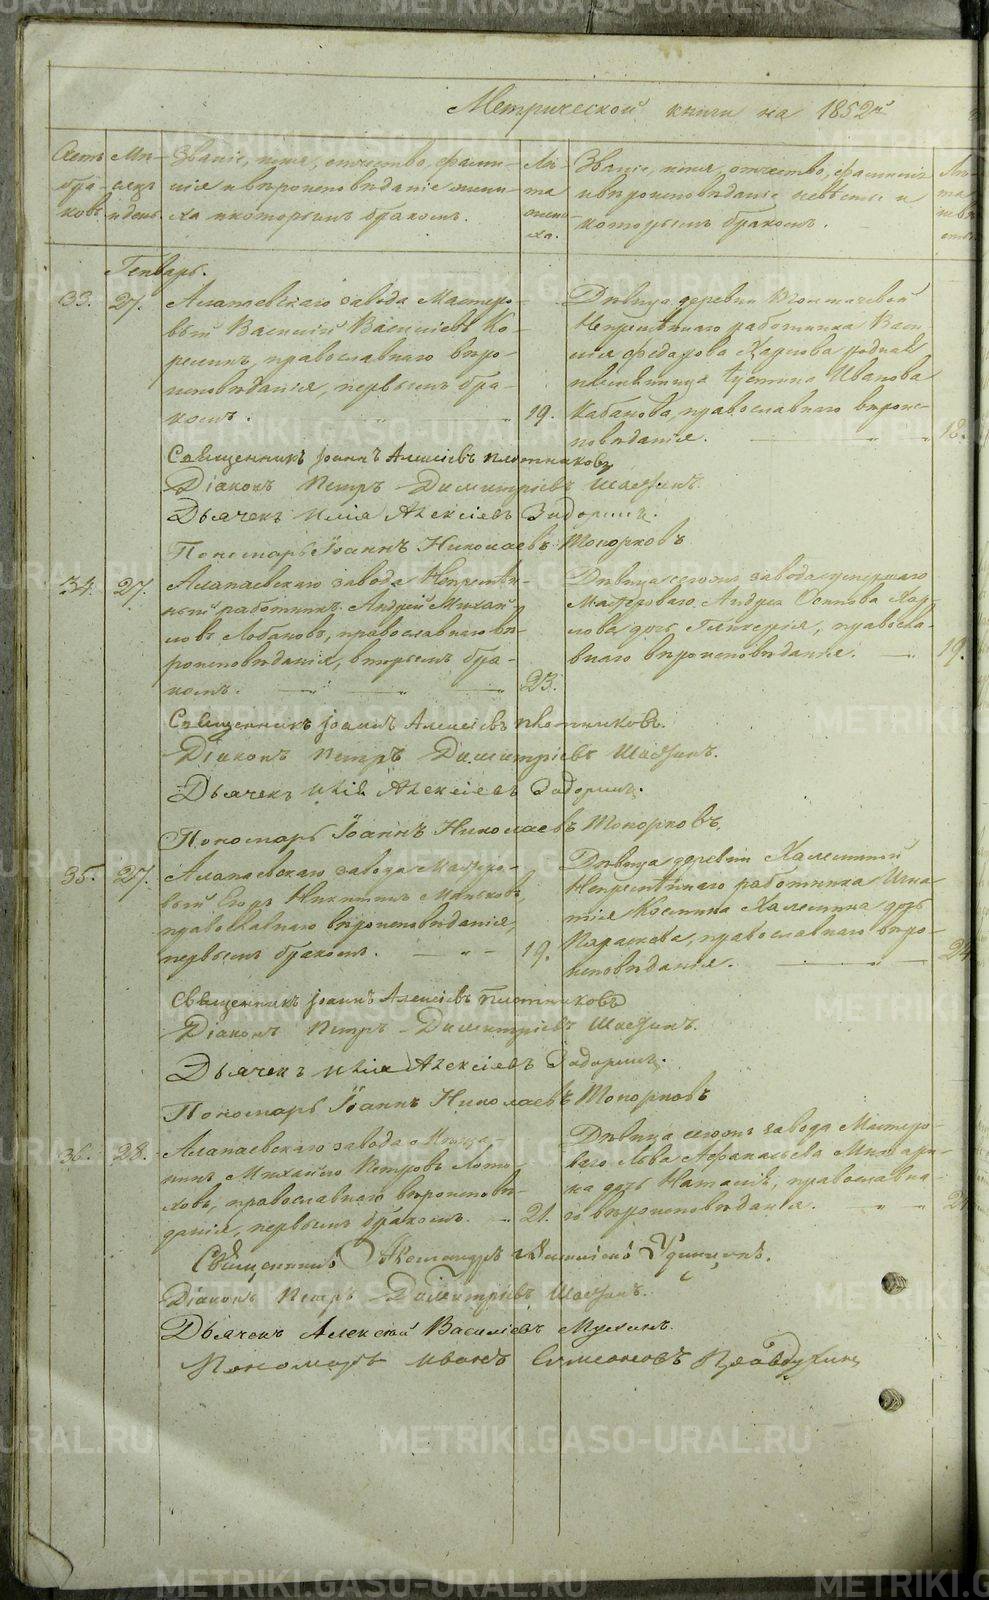 Метрической книги на 1852й
Счетъ бра- ковъ.
Мѣ- сяцъ и день.
Званіе, имя, отчество, фами-
лія и вѣроисповѣданіе жени-
ха и которымъ бракомъ.
Лѣ- та жени- ха.
Званіе, имя, отчество, фамилія
и вѣроисповѣданіе невѣсты и
которымъ бракомъ.
Генварь.
33. 27.
Алапаевскаго завода Мастеро-
вый Василій Василіевъ Ко-
релинъ, православнаго вѣро-
исповѣданія, первымъ бра-
комъ. 19.
Дѣвица деревни
Непремѣннаго работника Васи-
лія Федорова родная
племянница Устинья Иванова
Кабакова, православнаго вѣроис-
повѣданія. 18.
Священникъ Іоаннъ Алексіевъ Плотниковъ
Діаконъ Петръ Димитріевъ
Дьячекъ Илія Алексіевъ Задоринъ.
Пономарь Іоаннъ Николаевъ Топорковъ
34. 27.
Алапаевскаго завода Непремѣн-
ный работникъ Андрей Михай-
ловъ Лобановъ, православнаго вѣ-
роисповѣданія, вторымъ бра-
комъ. 23.
Дѣвица сегожъ завода умершаго
Мастероваго Андрея Осипова Хар-
лова дочь Гликерія, правосла-
внаго вѣроисповѣданія. 19.
Священникъ Іоаннъ Алексіевъ Плотниковъ.
Діаконъ Петръ Димитріевъ
Дьячекъ Илія Алексіевъ Задоринъ.
Пономарь Іоаннъ Николаевъ Топорковъ.
35. 27.
Алапаевскаго завода Мастеро-
вый Егоръ Никитинъ Маньковъ,
православнаго вѣроисповѣданія,
первымъ бракомъ. 19.
Дѣвица деревни
Непремѣннаго работника Игна-
тія Космина дочь
Параскева, православнаго вѣро-
исповѣданія. 24
Священникъ Іоаннъ Алексіевъ Плотниковъ
Діаконъ Петръ Димитріевъ
Дьячекъ Илія Алексіевъ Задоринъ.
Пономарь Іоаннъ Николаевъ Топорковъ
36. 28.
Алапаевскаго завода
Михайло Петровъ
православнаго вѣроисповѣ-
данія, первымъ бракомъ. 21.
Дѣвица сегожъ завода Мастеро-
ваго Льва Афанасьева
дочь Наталія, православна-
го вѣроисповѣданія.
Священникъ Александръ Удинцовъ.
Діаконъ Петръ Димитріевъ
Дьячекъ Алексѣй Василіевъ Мухинъ.
Пономарь Иванъ Симеоновъ
METRIKI.GASO-URAL.RU